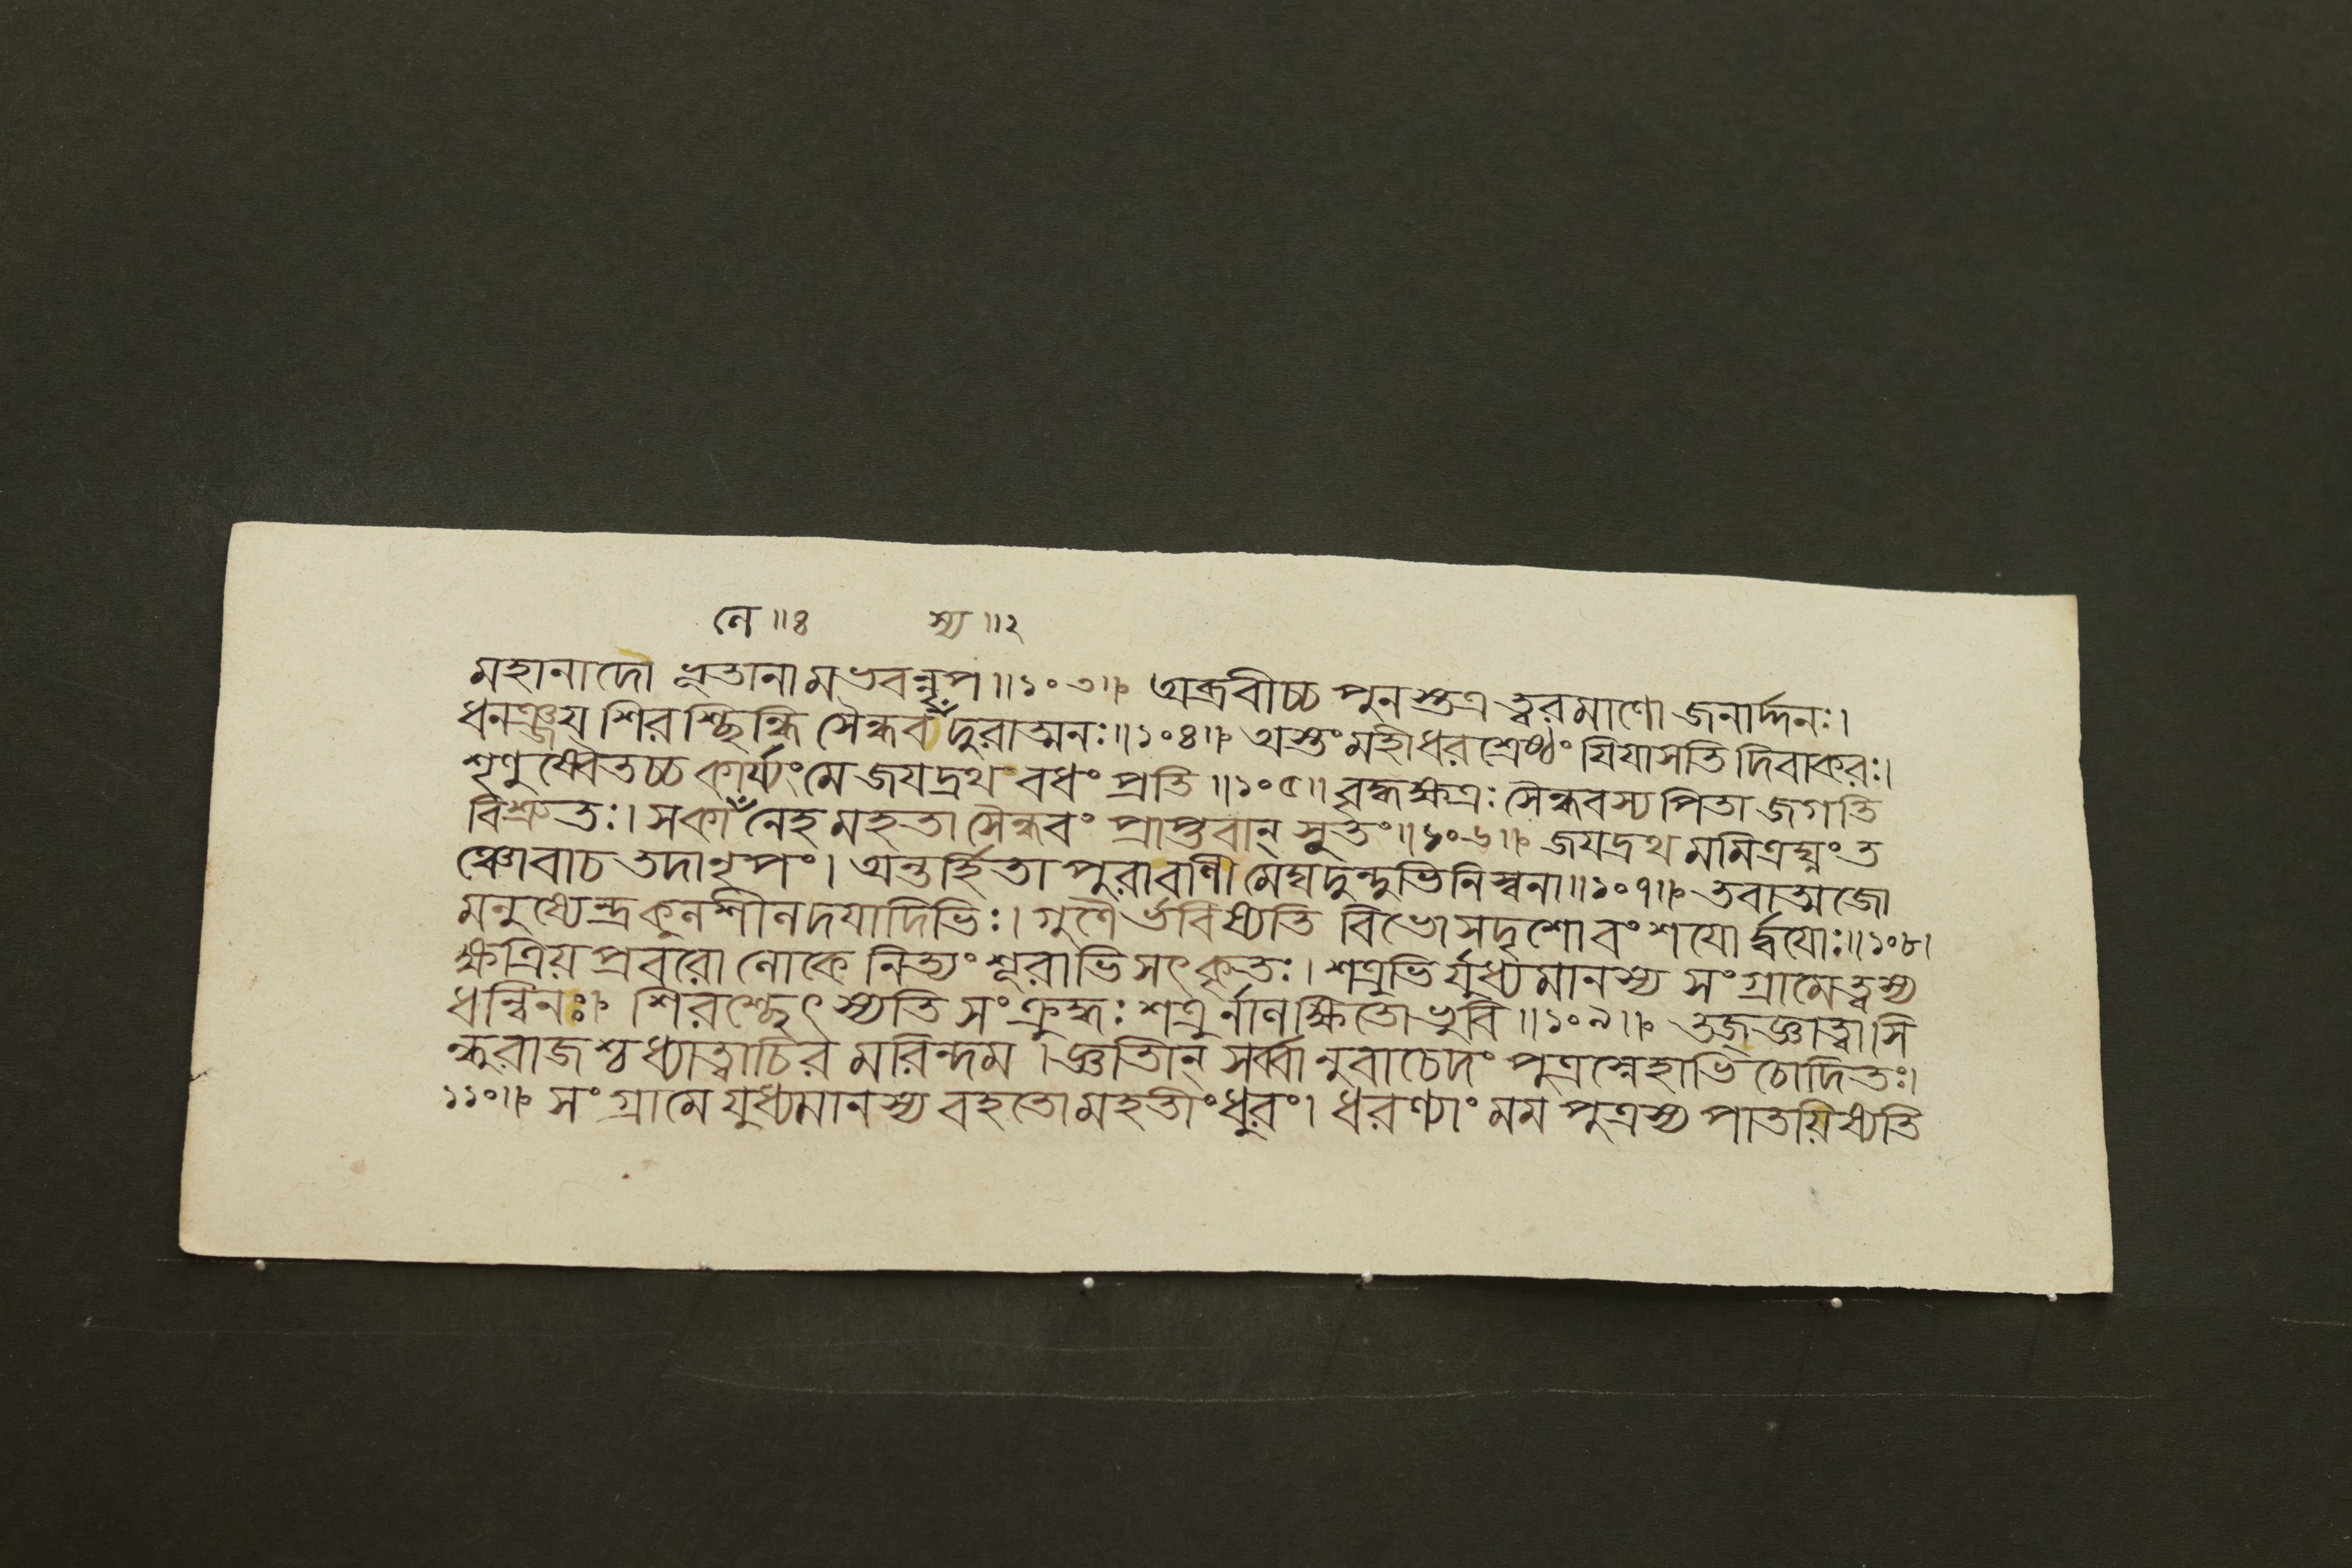 নে ॥৪ স্য ॥২
মহানাদো ভূতানামভবন্নৃপ ॥১০৩॥ অব্রবীচ্চ পুনস্তত্র ত্বরমাণো জনার্দ্দনঃ।
ধনঞ্জয় শিরশ্ছিন্ধি সৈন্ধবঁ দুরাত্মনঃ॥১০৪॥ অস্তং মহীধরশ্রেষ্ঠং যিযাসতি দিবাকরঃ।
শৃণুষ্বৈতচ্চ কার্য্যং মে জয়দ্রথং বধং প্রতি ॥১০৫॥ বৃদ্ধক্ষত্রঃ সৈন্ধবস্য পিতা জগতি
বিশ্রুতঃ। সকাঁনেহ মহতা সৈন্ধবং প্রাপ্তবান্ সুতং॥১০৬॥ জয়দ্রথমমিত্রঘ্নং ত
ঞ্চোবাচ তদা নৃপং। অন্তর্হিতা পুরা বাণী মেঘদুন্দুভিনিস্বনা॥১০৭॥ তবাত্মজো
মনুষ্যেন্দ্র কুলশীলদয়াদিভিঃ। গুণৈর্ভবিষ্যতি বিভো সদৃশো বংশয়োর্দ্বয়োঃ॥১০৮।
ক্ষত্রিয়প্রবরো লোকে নিত্যং শূরাভিসৎকৃতঃ। শত্রুভির্যুধ্যমানস্য সংগ্রামে ত্বস্য
ধন্বিনঃ॥ শিরশ্ছেৎস্যতি সংক্রুদ্ধঃ শত্রুর্নালক্ষিতো ভুবি ॥১০৯॥ তজ্জ্ঞাত্বা সি
ন্ধুরাজশ্চ ধ্যাত্বা চিরমরিন্দম। জ্ঞাতীন্ সর্ব্বানুবাচেদং পুত্রস্নেহাভিচোদিতঃ।
১১০॥ সংগ্রামে যুধ্যমানস্য বহতো মহতীং ধুরং। ধরণ্যাং মম পুত্রস্য পাতয়িষ্যতি